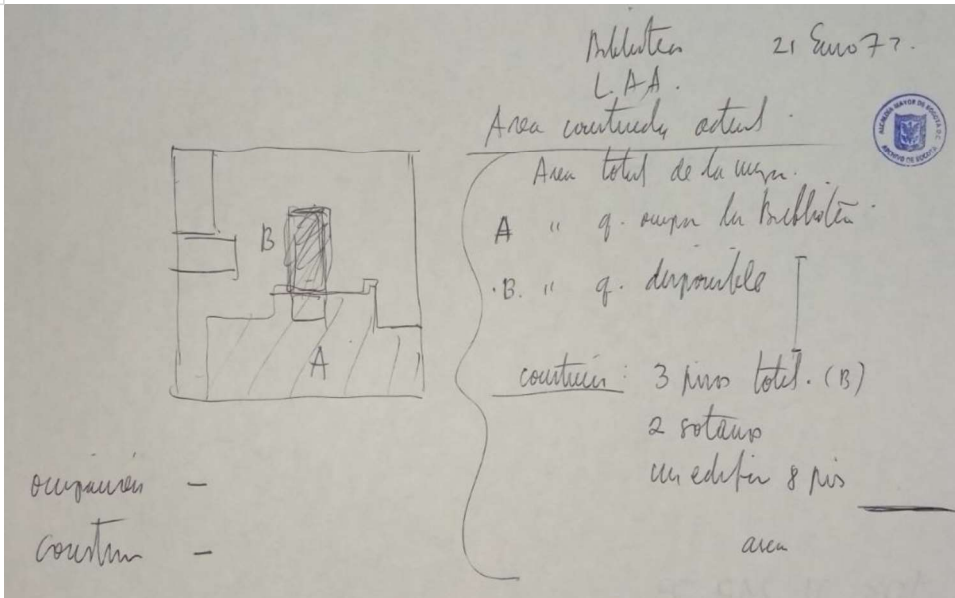 Biblioteca 21 Enero 77.
L.A.A.
Area construida actual.
Area total de la manz.
A " q. ocupa la Biblioteca.
B. " q. disponible
construcción: 3 pisos total. (B)
2 sotanos
un edificio 8 pisos
area
B
A
ocupación –
constru –
ALCALDIA MAYOR DE BOGOTA D.C.
ARCHIVO DE BOGOTA